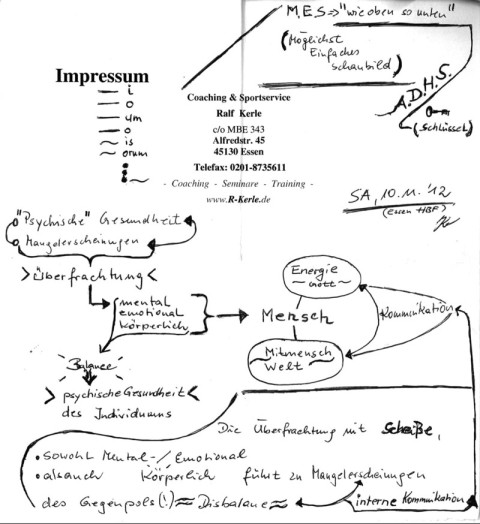 M.E.S. ⇒ "wie oben so unten"
(Möglichst
Einfaches
Schaubild)
A.D.H.S.
(Schlüssel)
Impressum
— i
— o
— um
— o
~ is
~ orum
Coaching & Sportservice
Ralf Kerle
c/o MBE 343
Alfredstr. 45
45130 Essen
Telefax: 0201-8735611
- Coaching - Seminare - Training -
www.R-Kerle.de
SA, 10.11.'12
(Essen HBF)
"Psychische" Gesundheit
Mangelerscheinungen
> Überfrachtung <
mental
emotional
körperlich
Mensch
Energie
~ Gott ~
Kommunikation
Mitmensch
Welt
Balance
> psychische Gesundheit <
des Individuums
Die Überfrachtung mit Scheiße,
• sowohl Mental-/Emotional
• als auch Körperlich führt zu Mangelerscheinungen
des Gegenpols (!) ≈ Disbalance ≈
interne Kommunikation